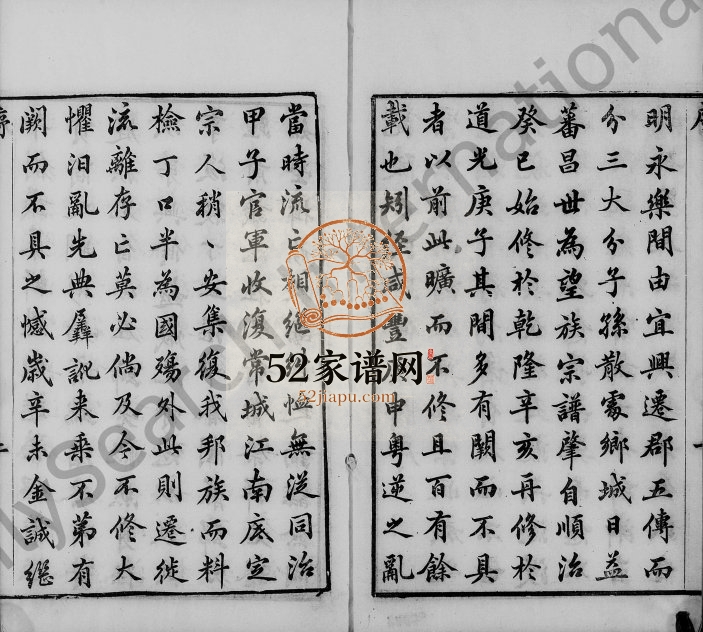 序
明永樂間由宜興遷郡五傳而
分三大分子孫散處鄉城日益
蕃昌世為望族宗譜肇自順治
癸巳始修於乾隆辛亥再修於
道光庚子其間多有闕而不具
者以前此曠而不修且百有餘
載也矧經咸豐庚申粵逆之亂
當時流亡相繼 無從同治
甲子官軍收復常城江南底定
宗人稍丶安集復我邦族而料
檢丁口半為國殤外此則遷徙
流離存亡莫必倘及今不修大
懼汨亂先典譌訛来乘不第有
闕而不具之憾歲辛未金誠繼
序
52家谱网
52jiapu.com
FamilySearch International